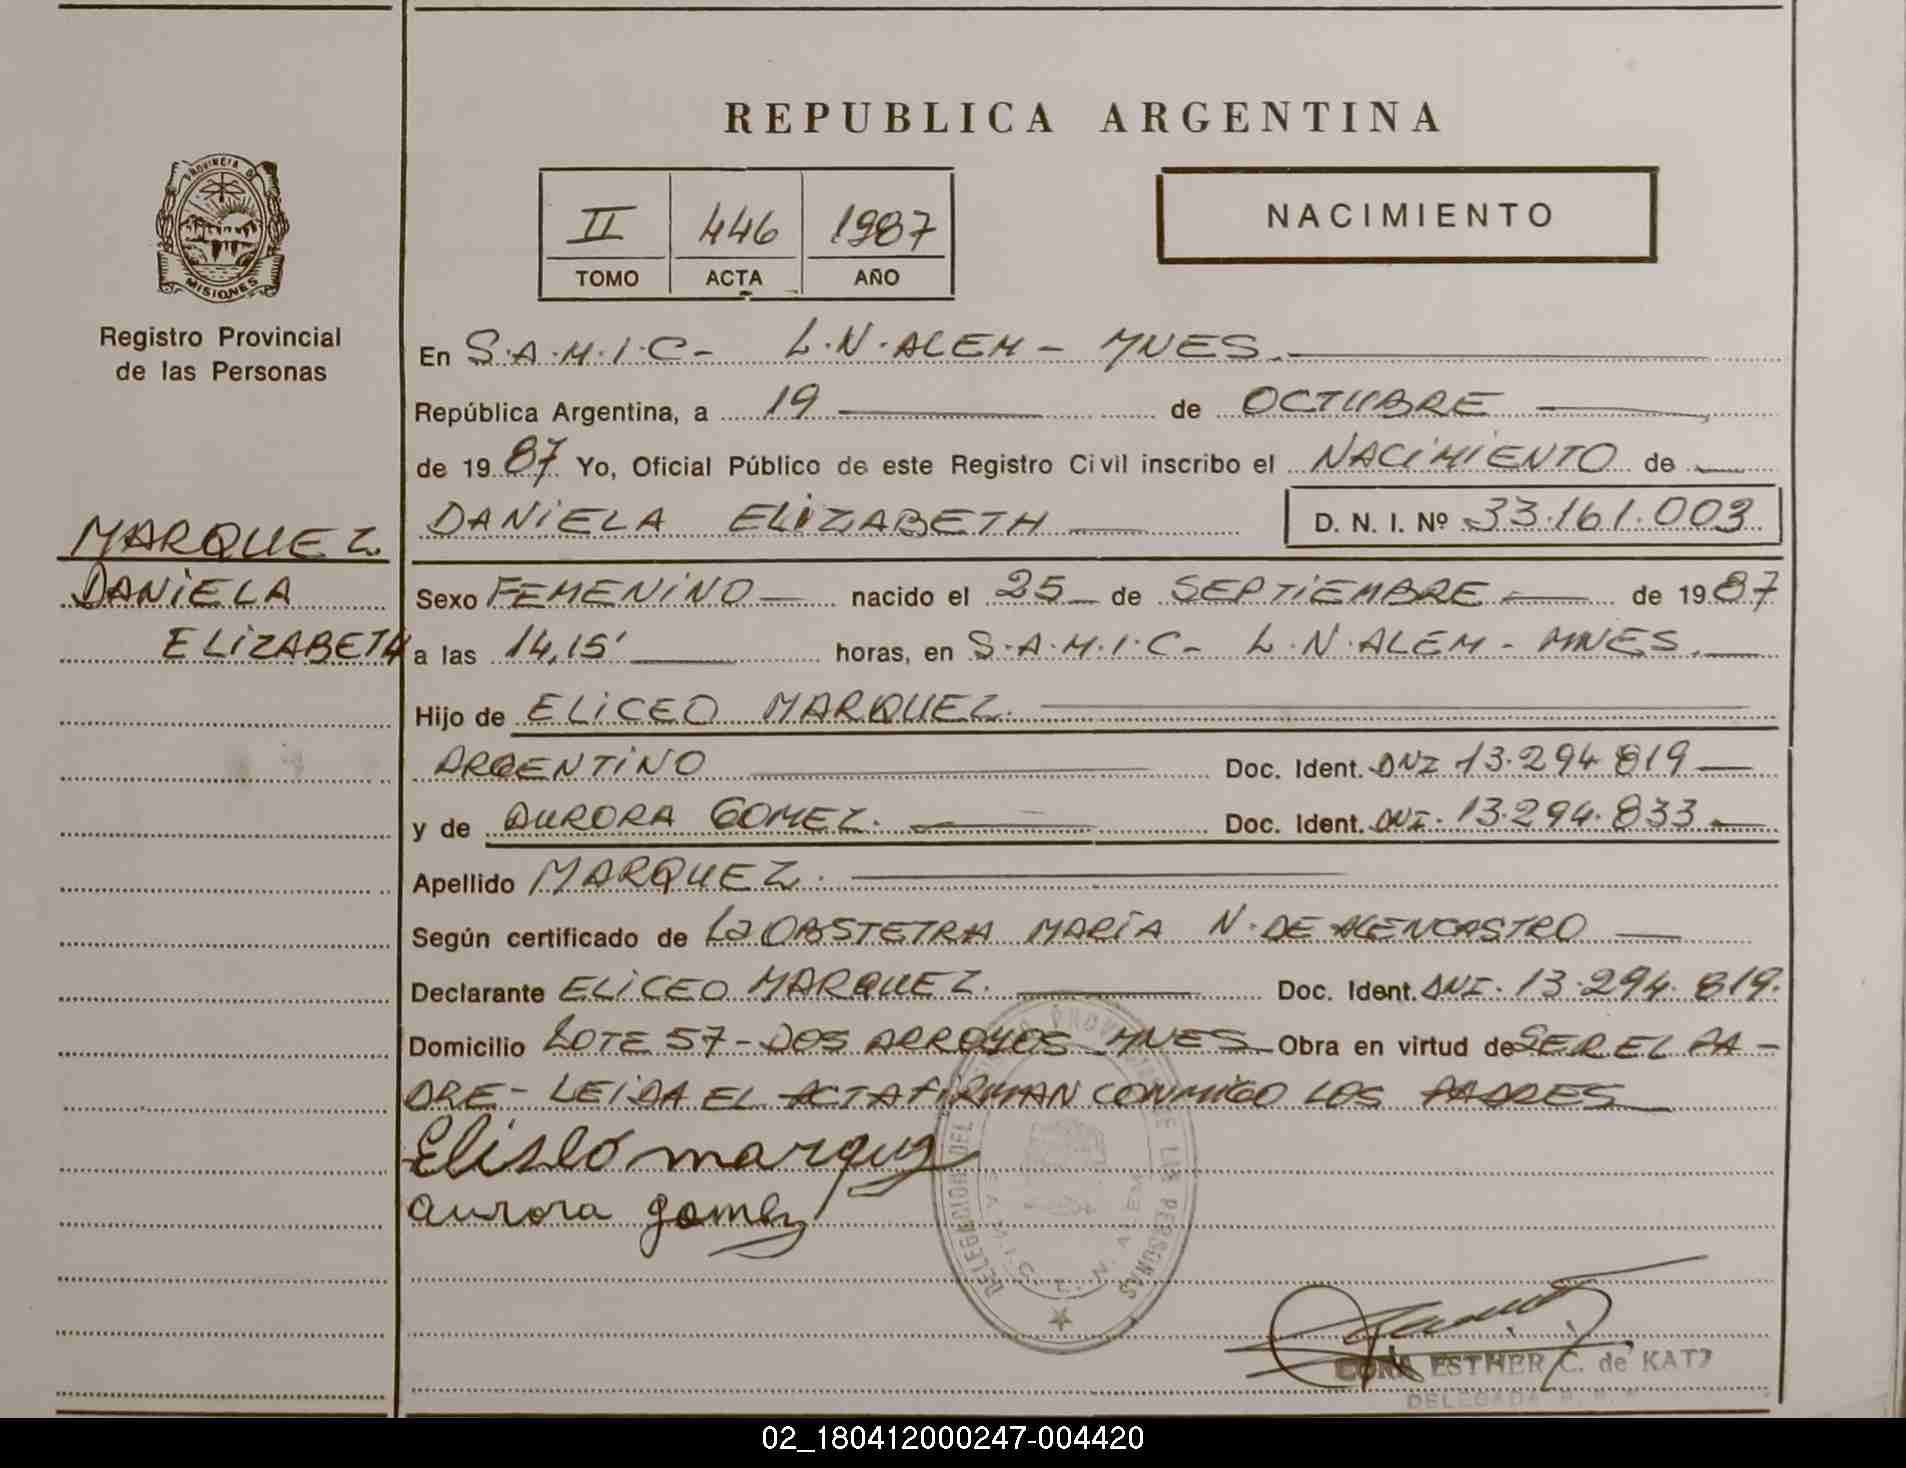 REPUBLICA ARGENTINA
PROVINCIA D
MISIONES
Registro Provincial
de las Personas
II 446 1987
TOMO ACTA AÑO
NACIMIENTO
En S.A.M.I.C- L.N.ALEM - MNES.
República Argentina, a 19 de OCTUBRE
de 1987 Yo, Oficial Público de este Registro Civil inscribo el NACIMIENTO de
DANIELA ELIZABETH D. N. I. Nº 33.161.003
MARQUEZ
DANIELA
ELIZABETH
Sexo FEMENINO nacido el 25 de SEPTIEMBRE de 1987
a las 14,15' horas, en S.A.M.I.C- L.N.ALEM - MNES.
Hijo de ELICEO MARQUEZ.
ARGENTINO Doc. Ident. DNI 13.294.819
y de AURORA GOMEZ. Doc. Ident. DNI. 13.294.833
Apellido MARQUEZ.
Según certificado de La OBSTETRA MARÍA N. DE ALENCASTRO
Declarante ELICEO MARQUEZ. Doc. Ident. DNI. 13.294.819.
Domicilio LOTE 57 - DOS ARROYOS MNES Obra en virtud de SER EL PA-
DRE - LEIDA EL ACTA FIRMAN CONMIGO LOS PADRES
Eliseo marquez
aurora gomez
DELEGACION DEL REGISTRO PROVINCIAL DE LAS PERSONAS
S.A.M.I.C. L. N. ALEM
ESTHER C. de KATZ
DELEGADA
02_180412000247-004420